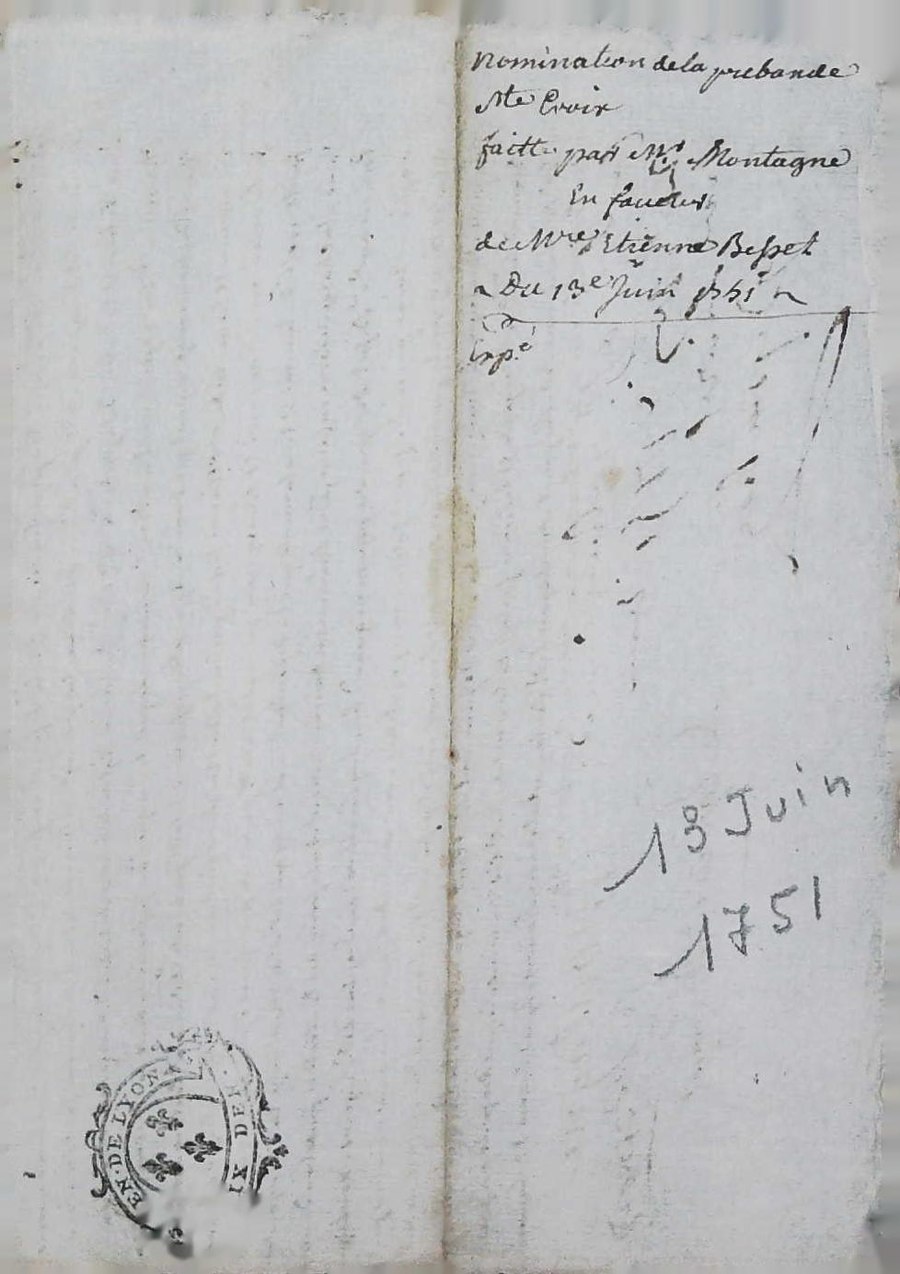 Nomination de la prebande
Ste Croix
faitte par Mr Montagne
En faueur
de Mre Etienne Besset
Du 13e Juin 1751
Expé
13 Juin
1751
EN · DE LYON
DEN · XI